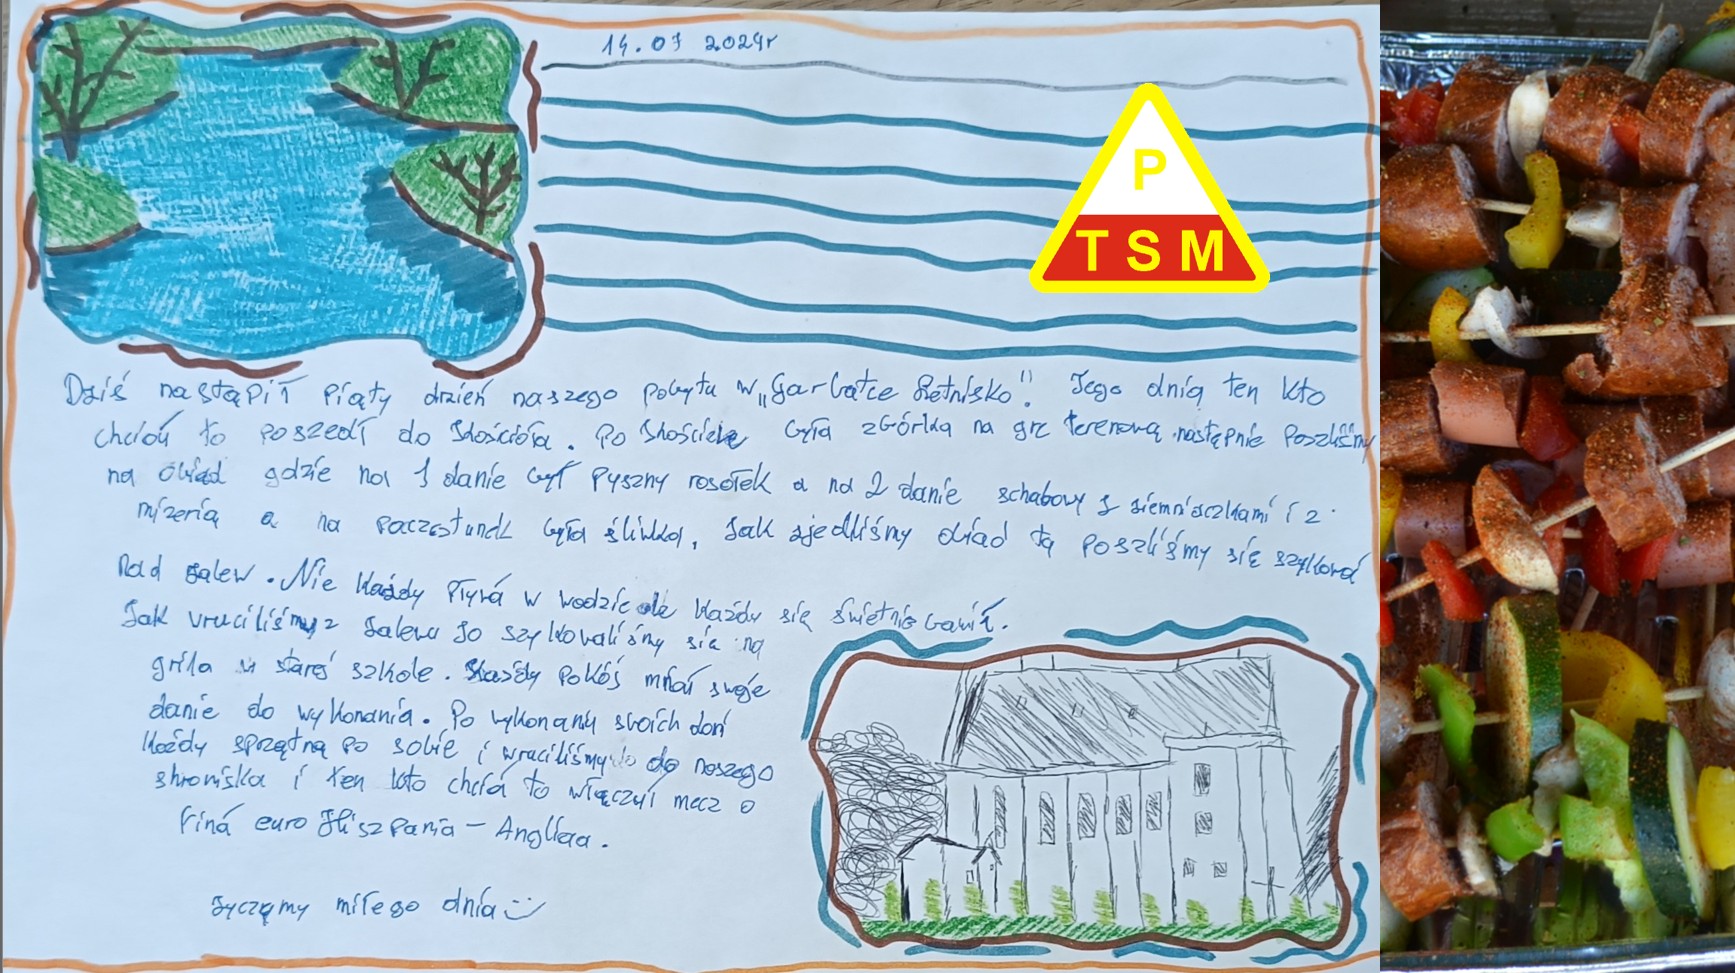 14.07 2024r
P
TSM
Dziś nastąpił piąty dzień naszego pobytu w „Garbatce Letnisko". Tego dnia ten kto
chciał to poszedł do kościoła. Po kościele była zbiórka na grę terenową następnie poszliśmy
na obiad gdzie na 1 danie był pyszny rosołek a na 2 danie schabowy z ziemniaczkami i z
mizerią a na poczęstunek była śliwka, Jak zjedliśmy obiad to poszliśmy się szykować
Nad zalew. Nie każdy pływa w wodzie ale każdy się świetnie bawił.
Jak vruciliśmy z zalewu to szykowaliśmy się na
grila w starej szkole. każdy pokój miał swoje
danie do wykonania. Po wykonaniu swoich dań
każdy sprzątną po sobie i wraciliśmy do naszego
shroniska i ten kto chciał to włączył mecz o
Finał euro Hiszpania - Anglia.
życzymy miłego dnia